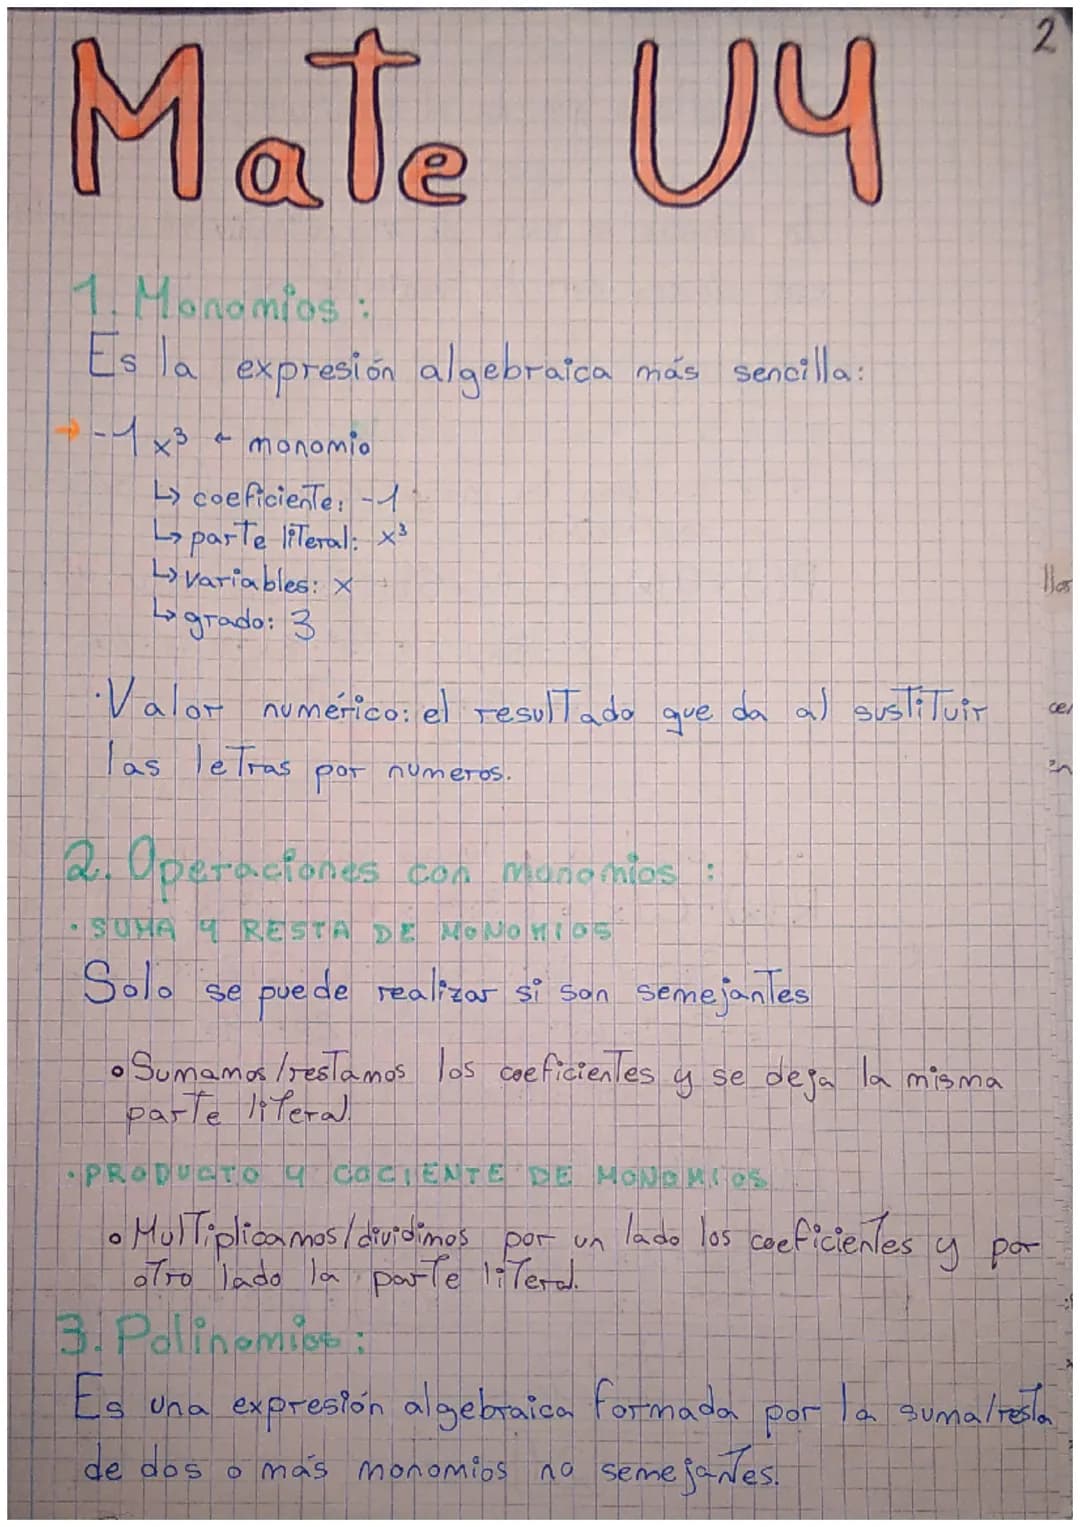 2
Mate U4
1. Monomios:
Es la expresión algebraica más sencilla:
→ -1x³ ← monomio
↳ coeficiente: -1
↳ parte literal: x³
↳ variables: x
↳ grado: 3
· Valor numérico: el resultado que da al sustituir
las letras por numeros.
2. Operaciones con monomios:
· SUMA Y RESTA DE MONOMIOS
Solo se puede realizar si son semejantes
o Sumamos/restamos los coeficientes y se deja la misma
parte literal.
· PRODUCTO Y COCIENTE DE MONOMIOS
o Multiplicamos/dividimos por un lado los coeficientes y por
otro lado la parte literal.
3. Polinomios:
Es una expresión algebraica formada por la suma/resta
de dos o más monomios no semejantes.